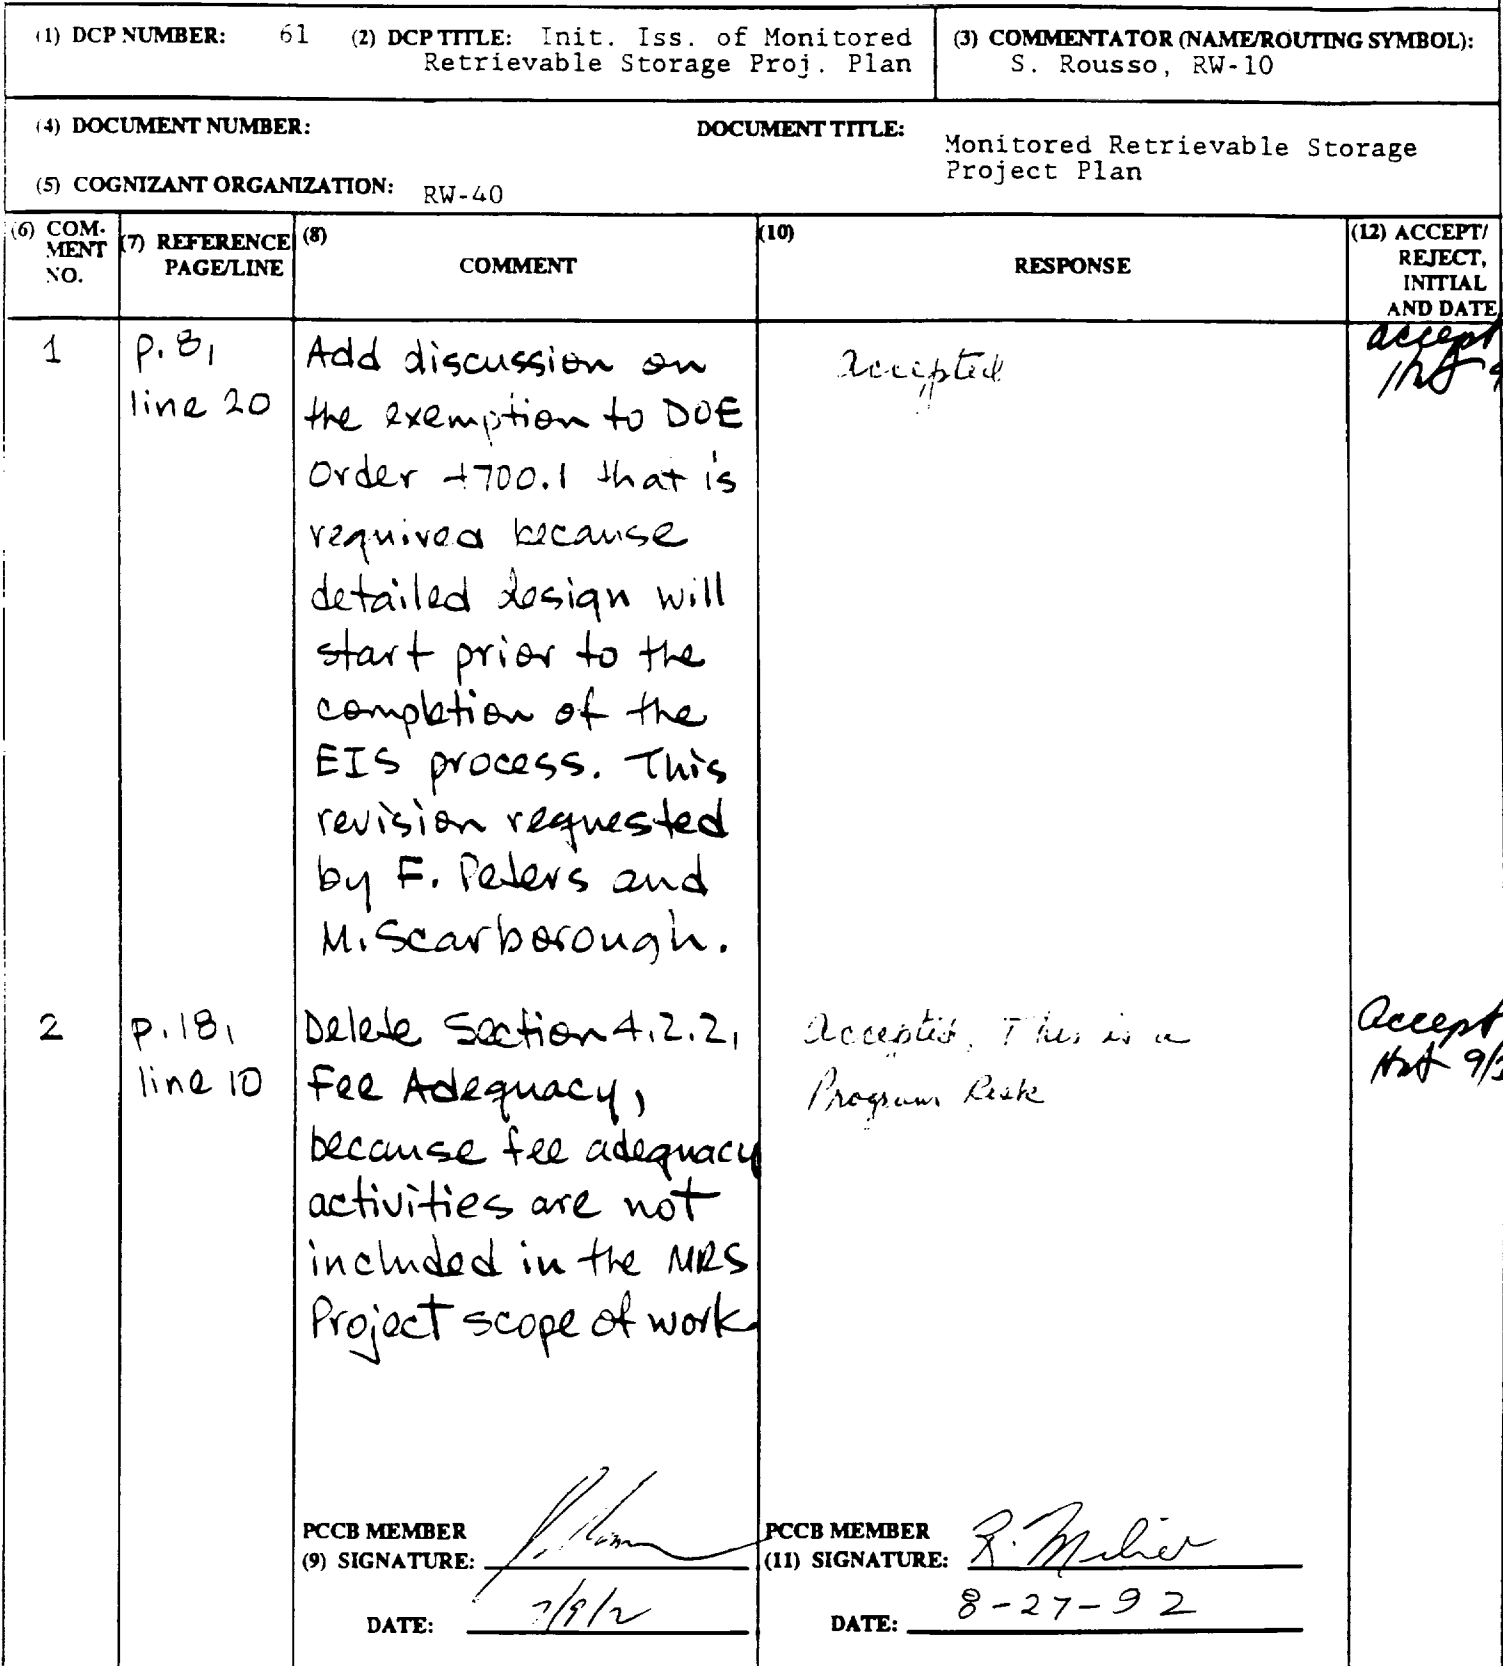 (1) DCP NUMBER: 61 (2) DCP TITLE: Init. Iss. of Monitored
Retrievable Storage Proj. Plan
(3) COMMENTATOR (NAME/ROUTING SYMBOL):
S. Rousso, RW-10
(4) DOCUMENT NUMBER:
DOCUMENT TITLE:
Monitored Retrievable Storage
Project Plan
(5) COGNIZANT ORGANIZATION: RW-40
(6) COM-
MENT
NO.
(7) REFERENCE
PAGE/LINE
(8)
COMMENT
(10)
RESPONSE
(12) ACCEPT/
REJECT,
INITIAL
AND DATE
1
p. 8,
line 20
Add discussion on
the exemption to DOE
Order 4700.1 that is
required because
detailed design will
start prior to the
completion of the
EIS process. This
revision requested
by F. Peters and
M. Scarborough.
Accepted
accept
2
p. 18,
line 10
Delete Section 4.2.2,
Fee Adequacy,
because fee adequacy
activities are not
included in the MRS
Project scope of work.
Accepted. This is a
Program Risk
Accept
9/
PCCB MEMBER
(9) SIGNATURE:
DATE:
PCCB MEMBER
(11) SIGNATURE: R. Milner
DATE: 8-27-92